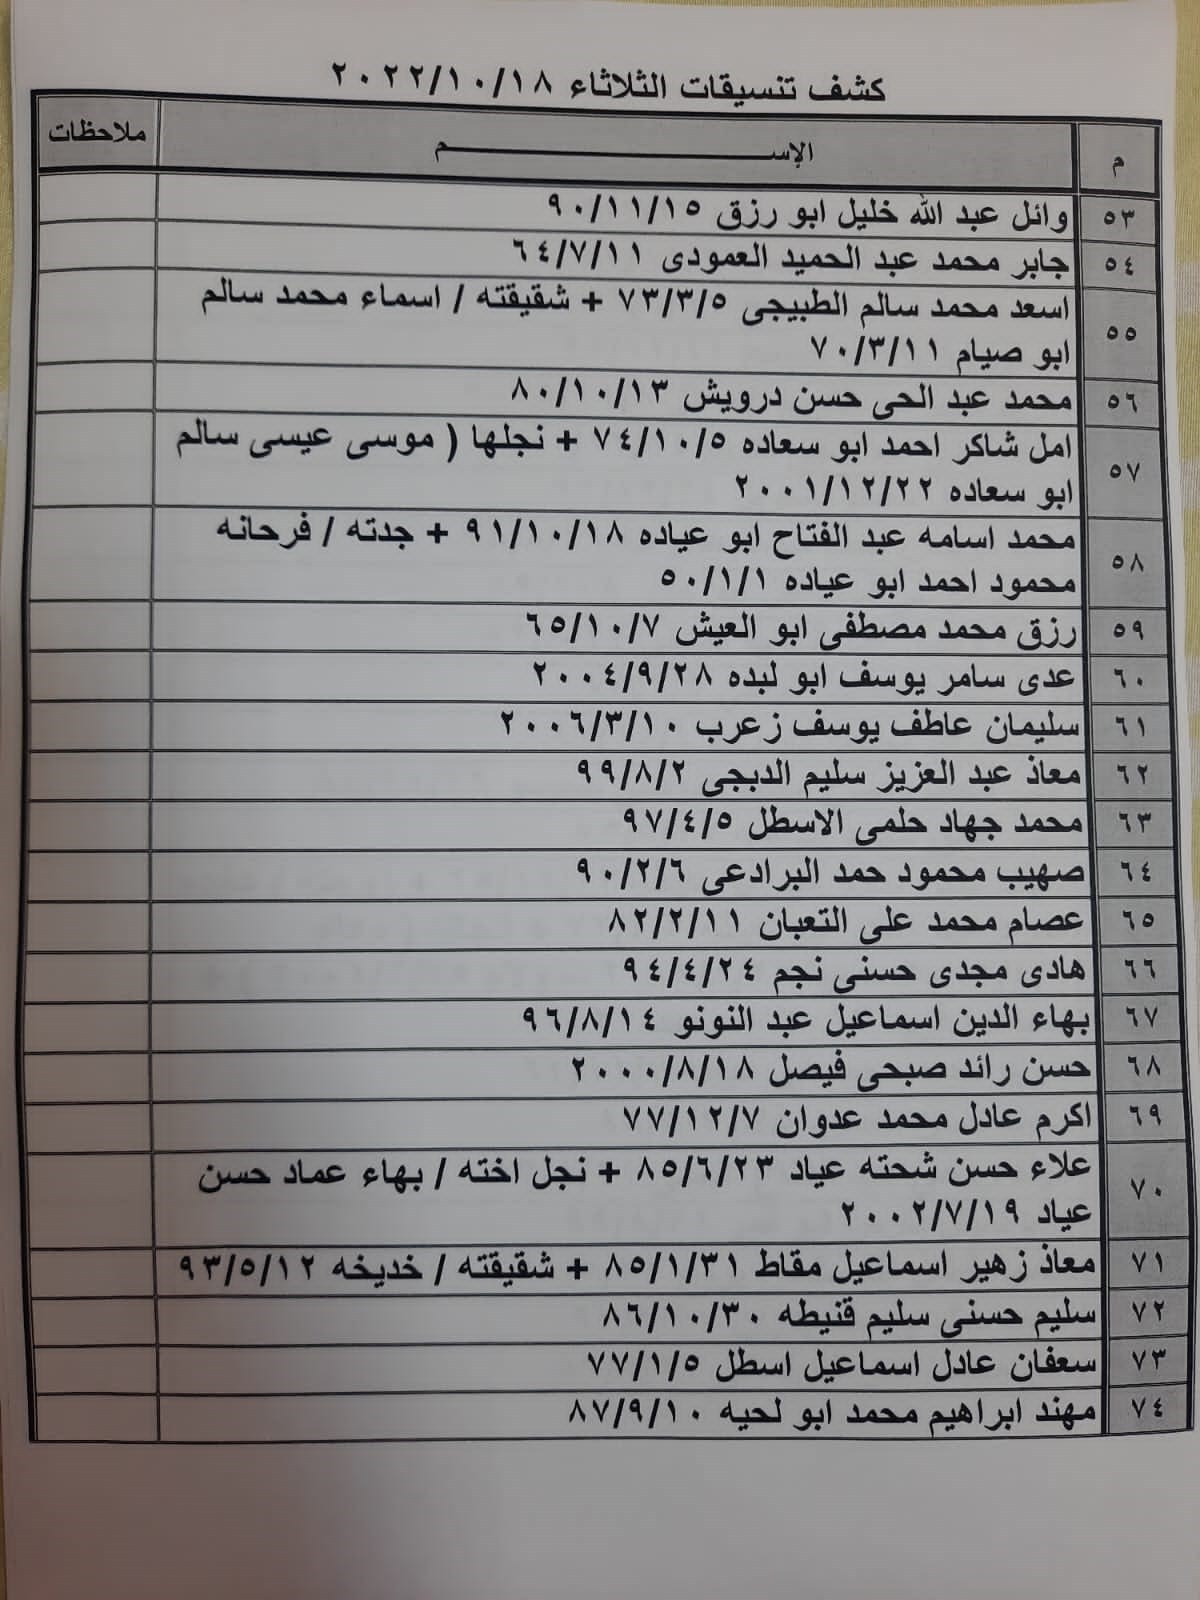 كشف تنسيقات الثلاثاء ٢٠٢٢/١٠/١٨
م الإســـــــــم ملاحظات
٥٣ وائل عبد الله خليل ابو رزق ٩٠/١١/١٥
٥٤ جابر محمد عبد الحميد العمودى ٦٤/٧/١١
٥٥ اسعد محمد سالم الطبيجى ٧٣/٣/٥ + شقيقته / اسماء محمد سالم
ابو صيام ٧٠/٣/١١
٥٦ محمد عبد الحى حسن درويش ٨٠/١٠/١٣
٥٧ امل شاكر احمد ابو سعاده ٧٤/١٠/٥ + نجلها ( موسى عيسى سالم
ابو سعاده ٢٠٠١/١٢/٢٢
٥٨ محمد اسامه عبد الفتاح ابو عياده ٩١/١٠/١٨ + جدته / فرحانه
محمود احمد ابو عياده ٥٠/١/١
٥٩ رزق محمد مصطفى ابو العيش ٦٥/١٠/٧
٦٠ عدى سامر يوسف ابو لبده ٢٠٠٤/٩/٢٨
٦١ سليمان عاطف يوسف زعرب ٢٠٠٦/٣/١٠
٦٢ معاذ عبد العزيز سليم الدبجى ٩٩/٨/٢
٦٣ محمد جهاد حلمى الاسطل ٩٧/٤/٥
٦٤ صهيب محمود حمد البرادعى ٩٠/٢/٦
٦٥ عصام محمد على التعبان ٨٢/٢/١١
٦٦ هادى مجدى حسنى نجم ٩٤/٤/٢٤
٦٧ بهاء الدين اسماعيل عبد النونو ٩٦/٨/١٤
٦٨ حسن رائد صبحى فيصل ٢٠٠٠/٨/١٨
٦٩ اكرم عادل محمد عدوان ٧٧/١٢/٧
٧٠ علاء حسن شحته عياد ٨٥/٦/٢٣ + نجل اخته / بهاء عماد حسن
عياد ٢٠٠٢/٧/١٩
٧١ معاذ زهير اسماعيل مقاط ٨٥/١/٣١ + شقيقته / خديخه ٩٣/٥/١٢
٧٢ سليم حسنى سليم قنيطه ٨٦/١٠/٣٠
٧٣ سعفان عادل اسماعيل اسطل ٧٧/١/٥
٧٤ مهند ابراهيم محمد ابو لحيه ٨٧/٩/١٠